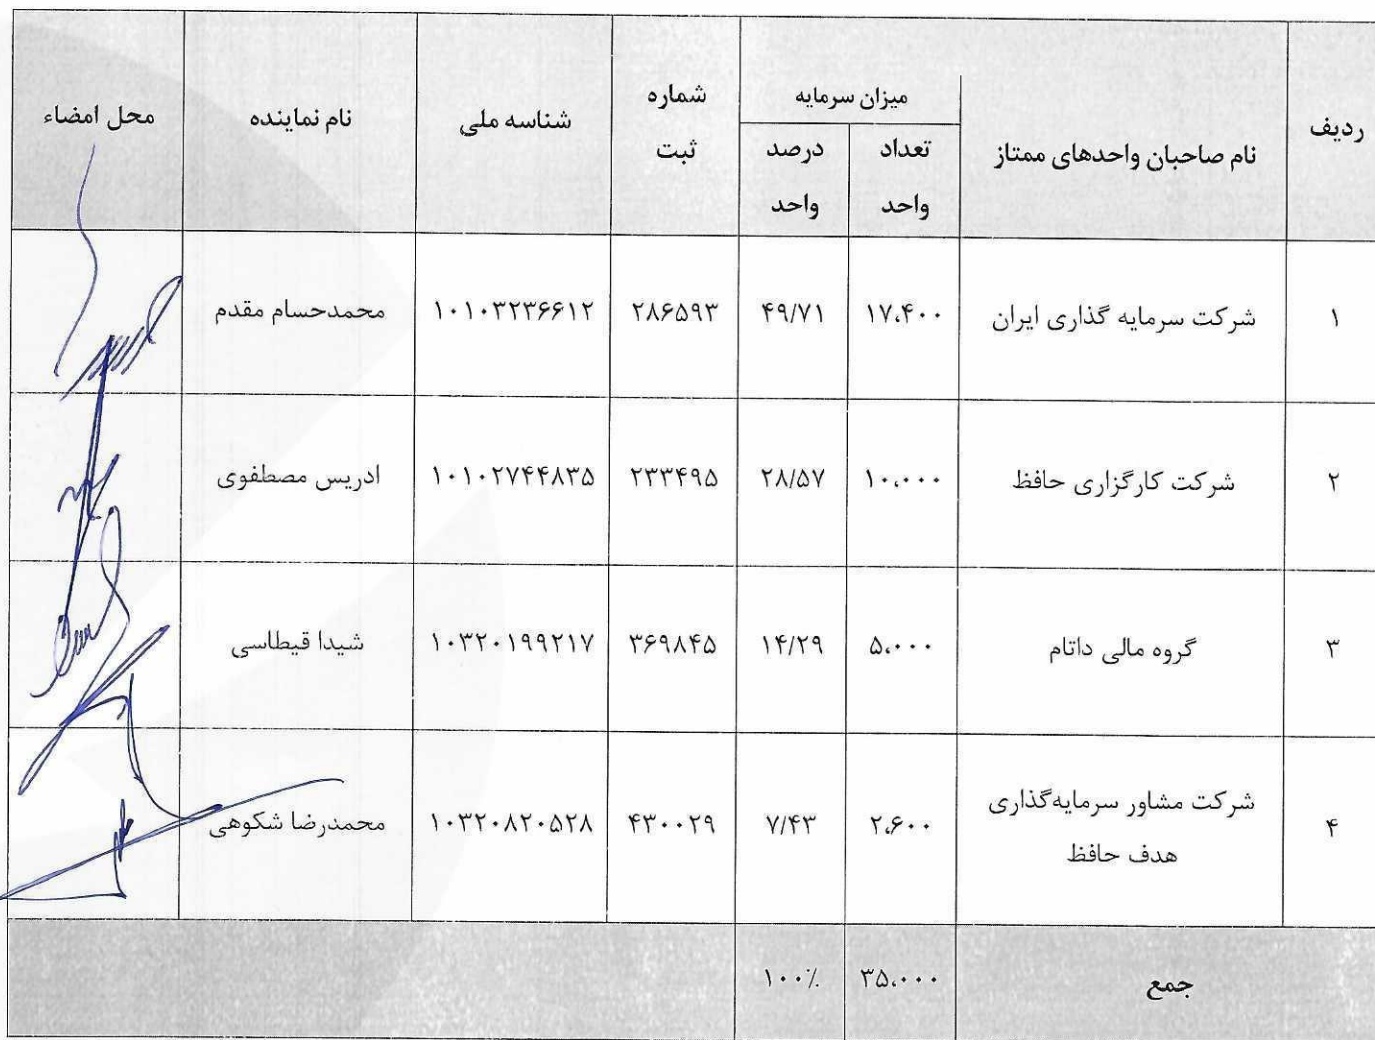 ردیف
نام صاحبان واحدهای ممتاز
میزان سرمایه
تعداد واحد
درصد واحد
شماره ثبت
شناسه ملی
نام نماینده
محل امضاء
۱ شرکت سرمایه گذاری ایران ۱۷،۴۰۰ ۴۹/۷۱ ۲۸۶۵۹۳ ۱۰۱۰۳۲۳۶۶۱۲ محمدحسام مقدم
۲ شرکت کارگزاری حافظ ۱۰،۰۰۰ ۲۸/۵۷ ۲۳۳۴۹۵ ۱۰۱۰۲۷۴۴۸۳۵ ادریس مصطفوی
۳ گروه مالی داتام ۵،۰۰۰ ۱۴/۲۹ ۳۶۹۸۴۵ ۱۰۳۲۰۱۹۹۲۱۷ شیدا قیطاسی
۴ شرکت مشاور سرمایه‌گذاری
هدف حافظ ۲،۶۰۰ ۷/۴۳ ۴۳۰۰۲۹ ۱۰۳۲۰۸۲۰۵۲۸ محمدرضا شکوهی
جمع ۳۵،۰۰۰ ۱۰۰٪